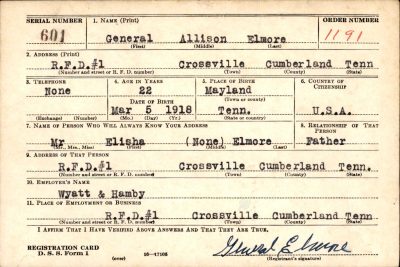 SERIAL NUMBER 1. NAME (Print) ORDER NUMBER
601 General Allison Elmore 1191
(First) (Middle) (Last)
2. ADDRESS (Print)
R.F.D.#1 Crossville Cumberland Tenn
(Number and street or R. F. D. number) (Town) (County) (State)
3. TELEPHONE 4. AGE IN YEARS 5. PLACE OF BIRTH 6. COUNTRY OF CITIZENSHIP
None 22 Mayland
DATE OF BIRTH (Town or county)
Mar 5 1918 Tenn. U.S.A.
(Exchange) (Number) (Mo.) (Day) (Yr.) (State or country)
7. NAME OF PERSON WHO WILL ALWAYS KNOW YOUR ADDRESS 8. RELATIONSHIP OF THAT PERSON
Mr Elisha (None) Elmore Father
(Mr., Mrs., Miss) (First) (Middle) (Last)
9. ADDRESS OF THAT PERSON
R.F.D.#1 Crossville Cumberland Tenn.
(Number and street or R. F. D. number) (Town) (County) (State)
10. EMPLOYER'S NAME
Wyatt & Hamby
11. PLACE OF EMPLOYMENT OR BUSINESS
R.F.D.#1 Crossville Cumberland Tenn
(Number and street or R. F. D. number) (Town) (County) (State)
I AFFIRM THAT I HAVE VERIFIED ABOVE ANSWERS AND THAT THEY ARE TRUE.
REGISTRATION CARD General Elmore
D. S. S. Form 1 (over) 16—17105 (Registrant's signature)